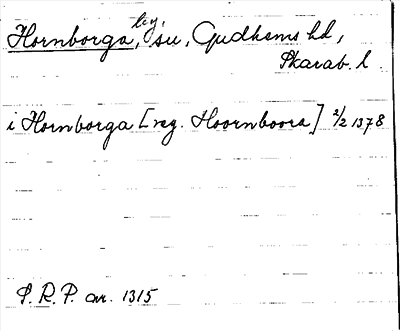 Hornborga, by, su, Gudhems hd,
Skarab. l.
i Hornborga [reg. Hoornboora] 2/2 1378
S.R.P. nr. 1315